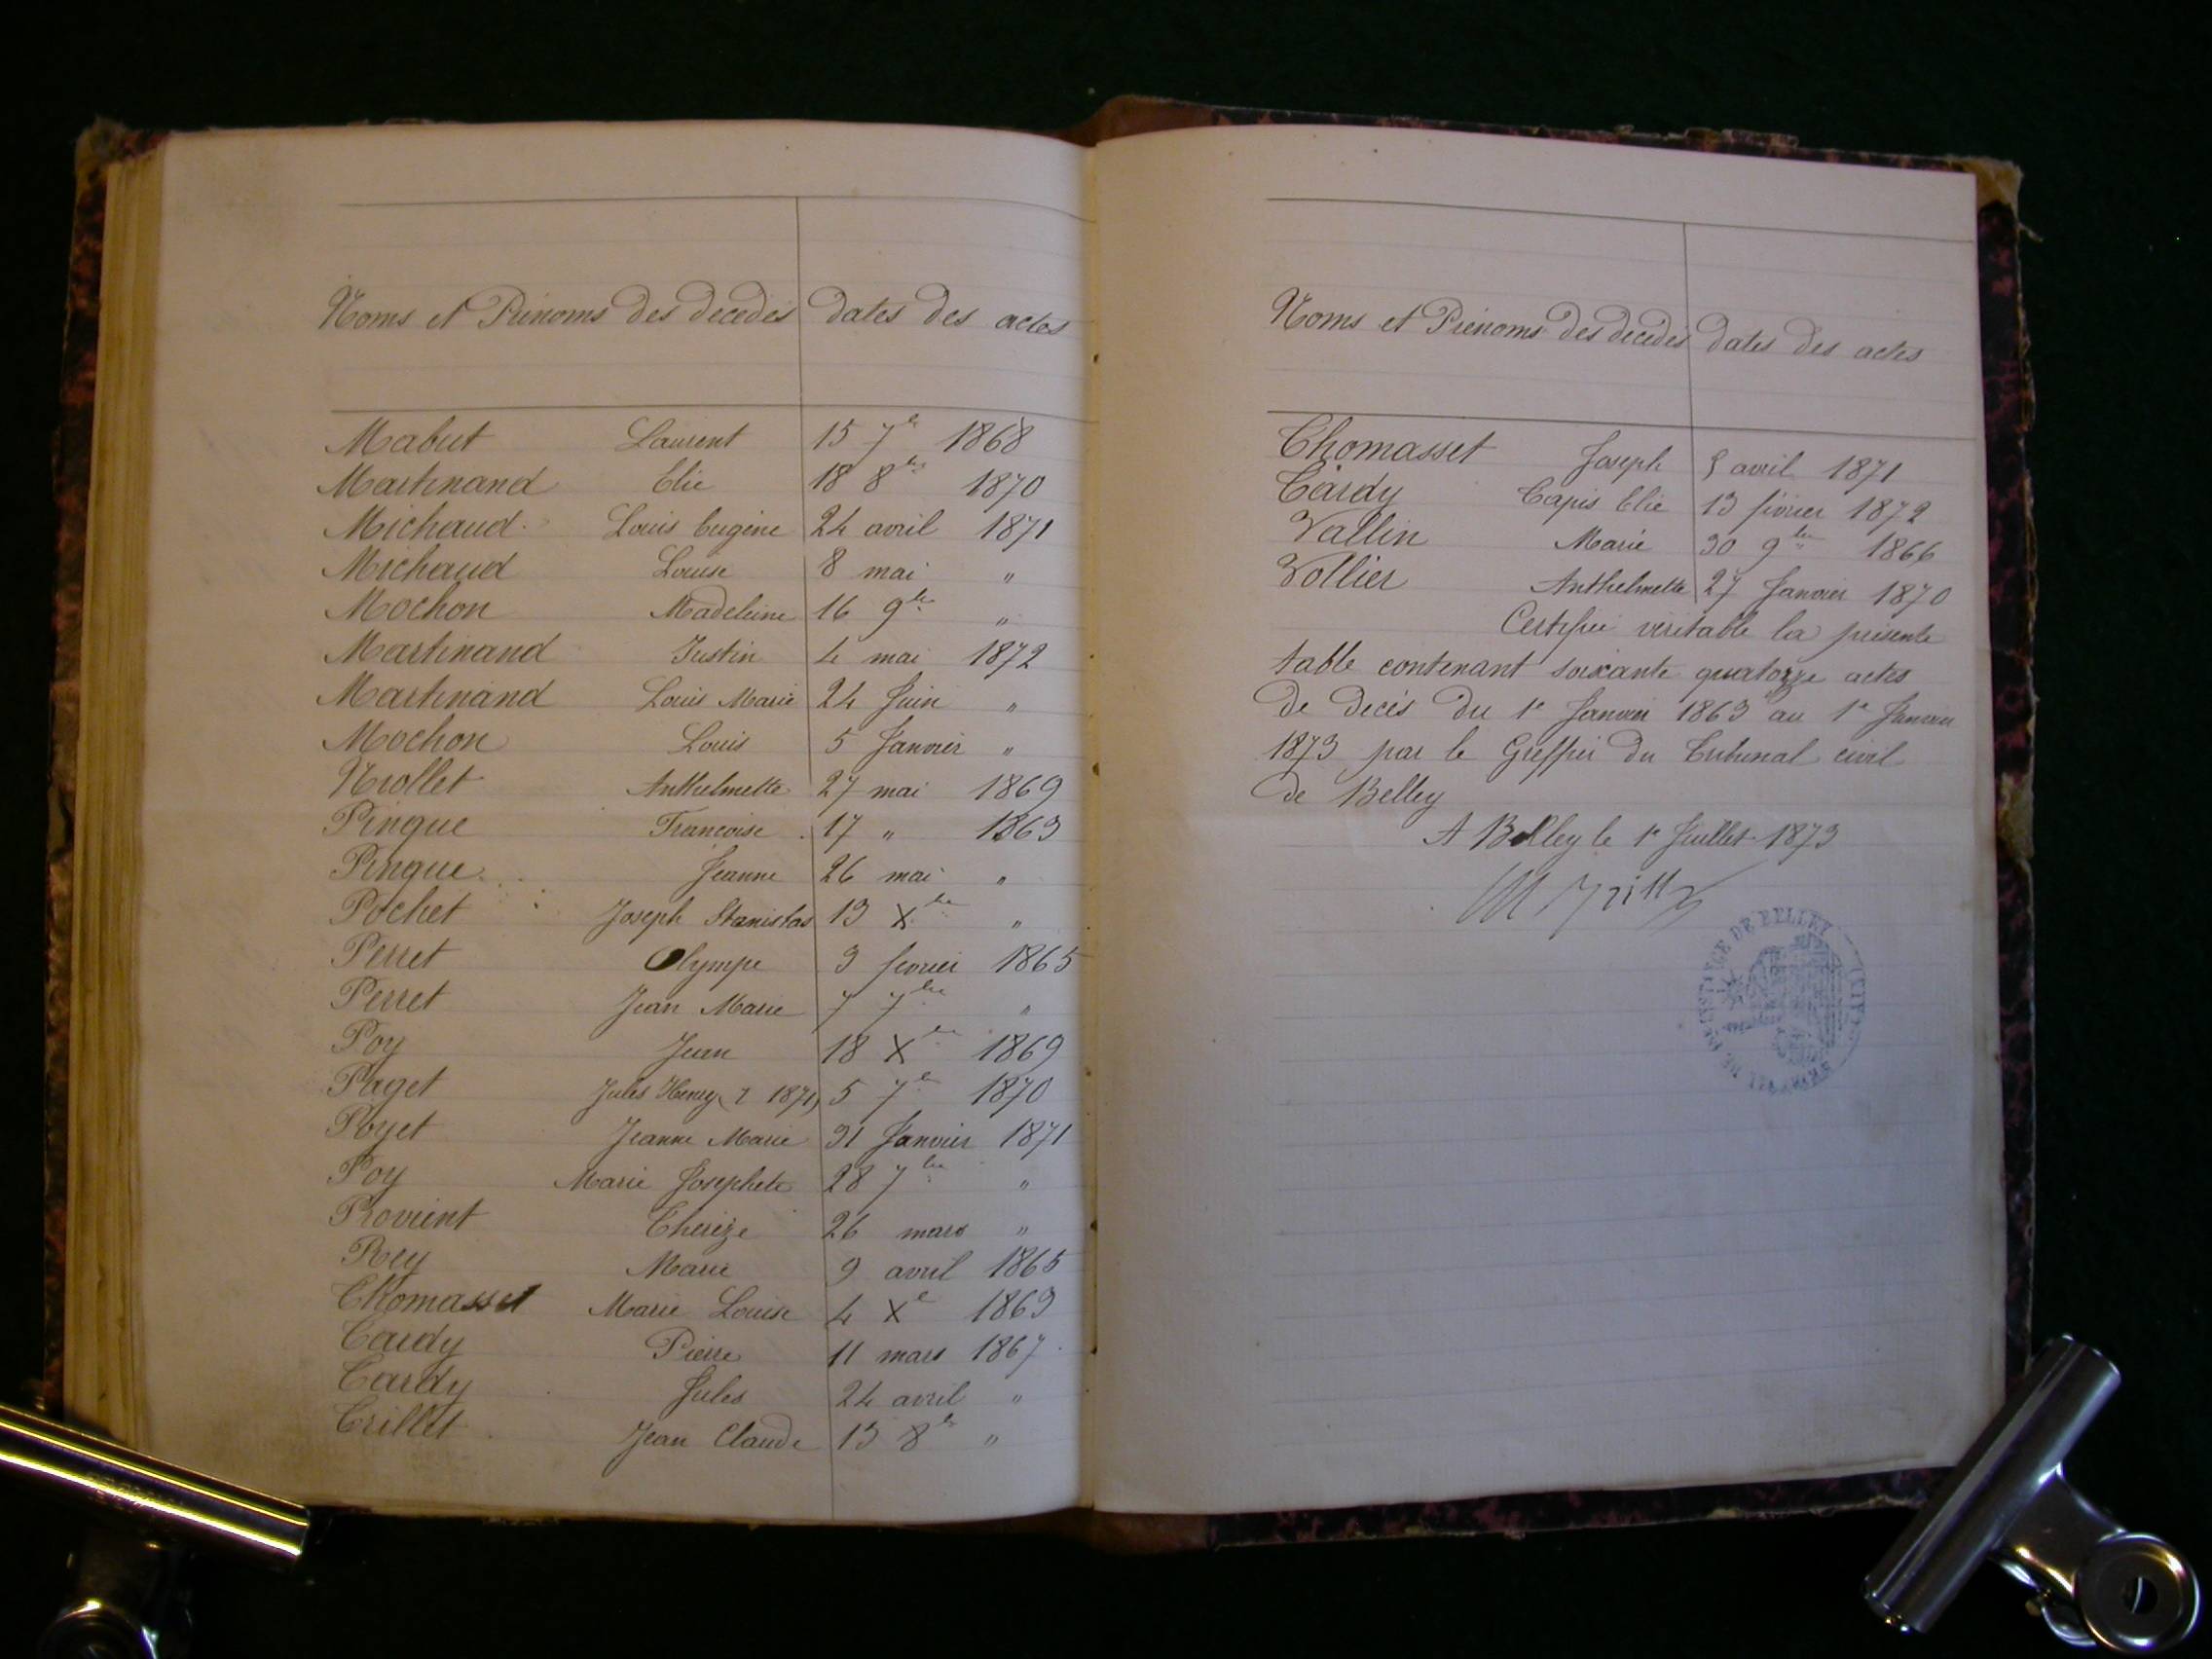 Noms et Prénoms des décédés dates des actes
Mabut Laurent 15 7e 1868
Martinand Elie 18 8bre 1870
Michaud Louis Eugène 24 avril 1871
Michaud Louise 8 mai "
Mochon Madeleine 16 9bre "
Martinand Justin 4 mai 1872
Martinand Louis Marie 24 Juin "
Mochon Louis 5 Janvier "
Niollet Anthelmette 27 mai 1869
Pingue Francoise 17 " 1863
Pingue Jeanne 26 mai "
Pochet Joseph Stanislas 13 Xbre "
Perret Olympe 3 fevrier 1865
Perret Jean Marie 7 7bre "
Poy Jean 18 Xbre 1869
Paget Jules Henry 1871 5 7e 1870
Poyet Jeanne Marie 31 Janvier 1871
Poy Marie Josephete 28 7bre "
Provient Thereze 26 mars "
Rey Marie 9 avril 1865
Thomasset Marie Louise 4 Xe 1863
Tardy Pierre 11 mars 1867
Tardy Jules 24 avril "
Trillet Jean Claude 13 8bre "
Noms et Prénoms des décédés dates des actes
Thomasset Joseph 5 avril 1871
Tardy Capis Elie 13 février 1872
Vallin Marie 30 9bre 1866
Vollier Anthelmette 27 Janvier 1870
Certifiée véritable la présente
table contenant soixante quatorze actes
de décès du 1er Janvier 1863 au 1er Janvier
1873 par le Greffier du Tribunal civil
de Belley
A Belley le 1er Juillet 1873
DE BELLEY